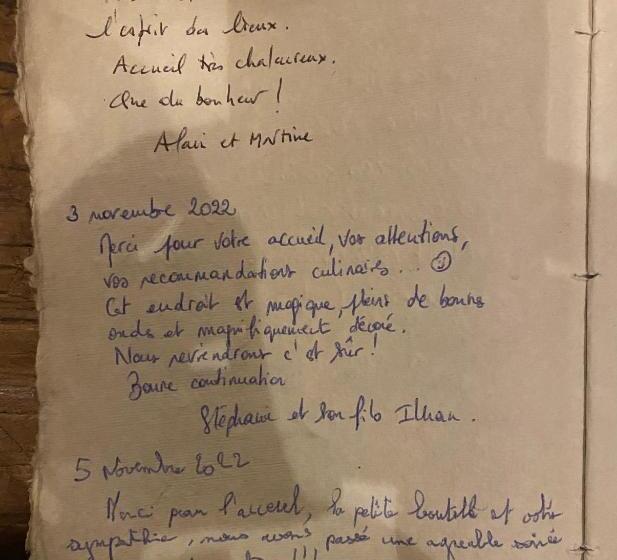 l'esprit des lieux.
Accueil très chaleureux.
Que du bonheur !
Alain et Martine
3 novembre 2022
Merci pour votre accueil, vos attentions,
vos recommandations culinaires... ☺
Cet endroit est magique, plein de bonnes
ondes et magnifiquement décoré.
Nous reviendrons c'est sûr !
Bonne continuation
Stéphanie et son fils Ilhan.
5 Novembre 2022
Merci pour l'accueil, la petite bouteille et votre
sympathie, nous avons passé une agréable soirée
!!!